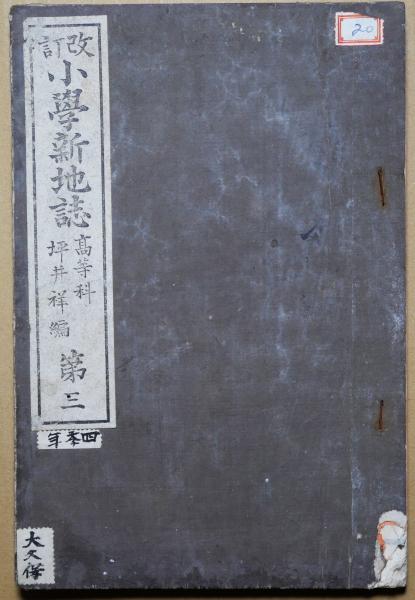 改訂
小學新地誌
高等科
坪井祥編
第三
四季年
大久保
20